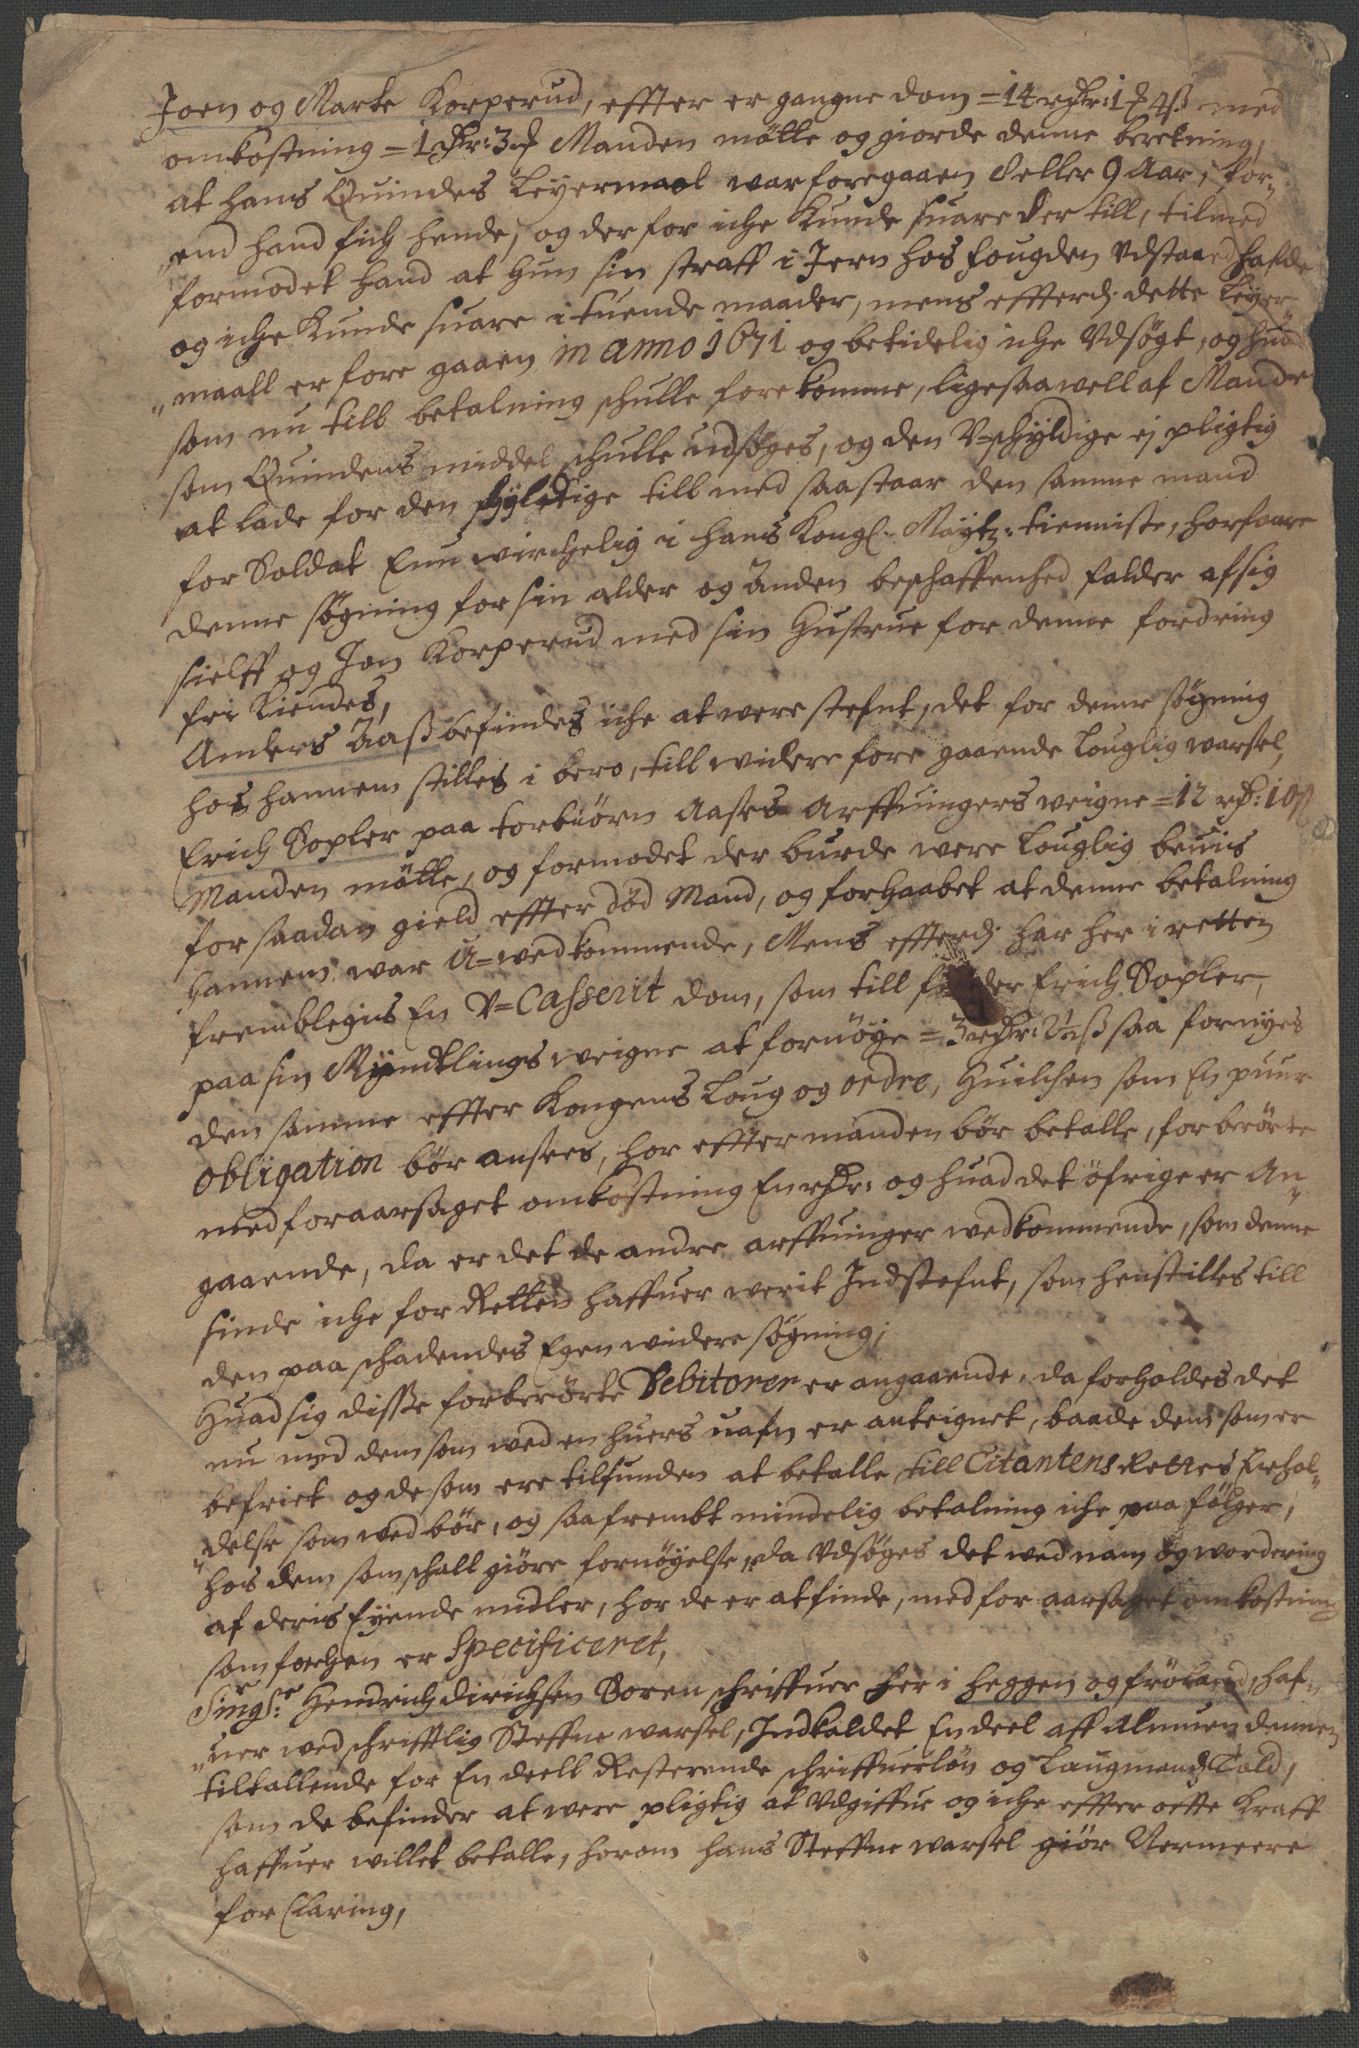 Joen og Marte Korperud, effter er gangne dom = 14 rdr: 1 ₰ 4 ß med
omkostning = 1 rdr: 3 ₰ Manden mötte og giorde denne beretning,
at hans Quindes Leyermaal war foregaaen 8 eller 9 Aar, för¬
end hand fich hende, og derfor iche kunde suare der till, tilmed
formodet hand at hun sin straff i Jern hos fougden udstaaed hafde
og iche kunde suare i tuende maader, mens effterdj dette Leyer
"maall er fore gaaen in anno 1671 og betidelig iche udsøgt, og huad
som nu till betalning schulle fore komme, ligesaawell af Mande
som Quindens middel schulle udsøges, og den V=schyldige ej pligtig
at lade for den schyldige till med saa staar den samme mand
for Soldat Enu wirchelig i hans Kongl. Maytz: tienniste, horfaare
denne søgning for sin alder og Anden beschaffenhed falder af sig
sielff og Jon Korperud med sin Hustrue for denne fordring
fri Kiendes,
Anders Aaß befindes iche at were stefnt, det for denne søgning
hos hannem stilles i bero, till widere fore gaaende Louglig warsel,
Erich Sopler paa torbiörn Aases Arffuingers weigne = 12 rdr: 10 ß
Manden mötte, og formodet der burde were Louglig beuis
for saadan gield effter död Mand, og forhaabet at denne betalning
hannem war U=wedkommende, Mens effterdj har her i retten
fremblegis En V=Casserit dom, som till finder Erich Sopler,
paa sin Myndtlings weigne at fornöye = 3 rdr: ß saa fornyes
den samme effter Kongens Loug og ordre, Huilchen som En puur
obligation bör ansees, hor effter manden bör betalle, for berörte
med foraarsaget omkostning En rdr: og huad det öfrige er An¬
gaaende, da er det de andre arffuinger wedkommende, som denne
sinde iche for Retten haffuer werit Indstefnt, som henstilles till
den paa schadendes Egen widere søgning;
Huad sig disse forberörte Debitorer er angaaende, da forholdes det
nu med dem som wed en huers nafn er anteignet, baade dem som er
befriet og de som ere tilfunden at betalle till Citantens Rettes Erhol¬
"delse som wed bör, og saa frembt mindelig betalning iche paa følger,
hos dem som schall giöre fornöyelse, da udsøges det wed nam og wordering
af deris Eyende midler, hor de er at finde, med for aarsaget omkostning
som forhen er Specificeret,
Sing:r Hendrich Dirichsen Soren schriffuer her i Heggen og fröland, haf¬
"uer wed schrifftlig Steffne warsel, Indkaldet En deel aff Almuen dennem
tiltallende for En deell Resterende schriffuerlön og Laugmands Told,
som de befinder at were pligtig at udgiffue og iche effter oette Krafft
haffuer willet betalle, horom hans Steffne warsel giör Nermeere
for Claring,